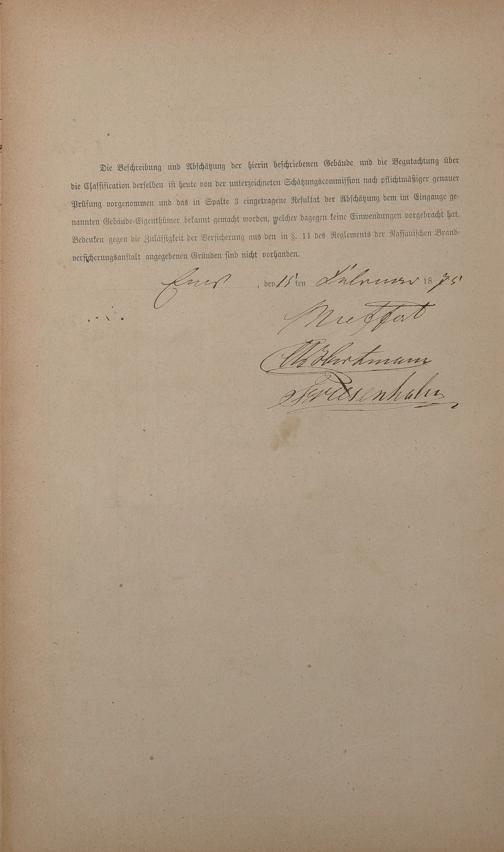 Die Beschreibung und Abschätzung der hierin beschriebenen Gebäude und die Begutachtung über
die Classification derselben ist heute von der unterzeichneten Schätzungscommission nach pflichtmäßiger genauer
Prüfung vorgenommen und das in Spalte 3 eingetragene Resultat der Abschätzung dem im Eingange ge-
nannten Gebäude-Eigenthümer bekannt gemacht worden, welcher dagegen keine Einwendungen vorgebracht hat.
Bedenken gegen die Zulässigkeit der Versicherung aus den in §. 11 des Reglements der Nassauischen Brand-
versicherungsanstalt angegebenen Gründen sind nicht vorhanden.
Ems, den 15 ten Februar 1875